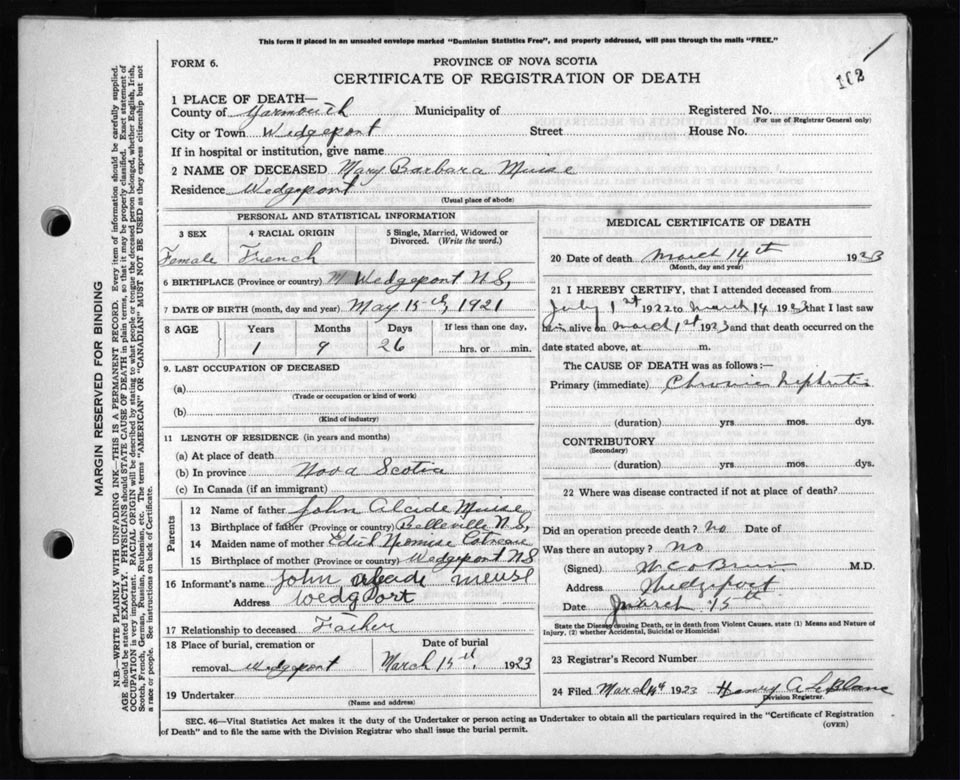 This form if placed in an unsealed envelope marked "Dominion Statistics Free", and properly addressed, will pass through the mails "FREE."
FORM 6.
PROVINCE OF NOVA SCOTIA
102
CERTIFICATE OF REGISTRATION OF DEATH
1 PLACE OF DEATH—
County of Yarmouth Municipality of Registered No.
(For use of Registrar General only)
City or Town Wedgeport Street House No.
If in hospital or institution, give name
2 NAME OF DECEASED Mary Barbara Muise
Residence Wedgeport
(Usual place of abode)
PERSONAL AND STATISTICAL INFORMATION
3 SEX 4 RACIAL ORIGIN 5 Single, Married, Widowed or Divorced. (Write the word.)
Female French
6 BIRTHPLACE (Province or country) Wedgeport N.S,
7 DATE OF BIRTH (month, day and year) May 15th, 1921
8 AGE Years Months Days If less than one day,
1 9 26 hrs. or min.
9. LAST OCCUPATION OF DECEASED
(a)
(Trade or occupation or kind of work)
(b)
(Kind of industry)
11 LENGTH OF RESIDENCE (in years and months)
(a) At place of death
(b) In province Nova Scotia
(c) In Canada (if an immigrant)
Parents
12 Name of father John Alcide Muise
13 Birthplace of father (Province or country) Belleville N.S,
14 Maiden name of mother
15 Birthplace of mother (Province or country) Wedgeport N.S
16 Informant's name John alcade meuse
Address wedgport
17 Relationship to deceased Father
18 Place of burial, cremation or removal Wedgeport
Date of burial
March 15th, 1923
19 Undertaker
(Name and address)
MEDICAL CERTIFICATE OF DEATH
20 Date of death March 14th 1923
(Month, day and year)
21 I HEREBY CERTIFY, that I attended deceased from
July 1st 1922 to March 14 1923 that I last saw
h alive on March 1st 1923 and that death occurred on
date stated above, at m.
The CAUSE OF DEATH was as follows:—
Primary (immediate) Chronic Nephritis
(duration) yrs. mos. dys.
CONTRIBUTORY
(Secondary)
(duration) yrs. mos. dys.
22 Where was disease contracted if not at place of death?
Did an operation precede death? no Date of
Was there an autopsy? no
(Signed) M.D.
Address Wedgeport
Date March 15th
State the Disease causing Death, or in death from Violent Causes, state (1) Means and Nature of
Injury, (2) whether Accidental, Suicidal or Homicidal
23 Registrar's Record Number
24 Filed March 1923 Henry A LeBlanc
Division Registrar.
SEC. 46—Vital Statistics Act makes it the duty of the Undertaker or person acting as Undertaker to obtain all the particulars required in the "Certificate of Registration
of Death" and to file the same with the Division Registrar who shall issue the burial permit.
(OVER)
MARGIN RESERVED FOR BINDING
N.B.—WRITE PLAINLY WITH UNFADING INK—THIS IS A PERMANENT RECORD. Every item of information should be carefully supplied.
AGE should be stated EXACTLY. PHYSICIANS should STATE CAUSE OF DEATH in plain terms, so that it may be properly classified. Exact statement of
OCCUPATION is very important. RACIAL ORIGIN will be described by stating to what people or tongue the deceased person belonged, whether English, Irish,
Scotch, French, German, Russian, Ruthenian, etc. The terms "AMERICAN" OR "CANADIAN" MUST NOT BE USED as they express citizenship but not
a race or people. See instructions on back of Certificate.